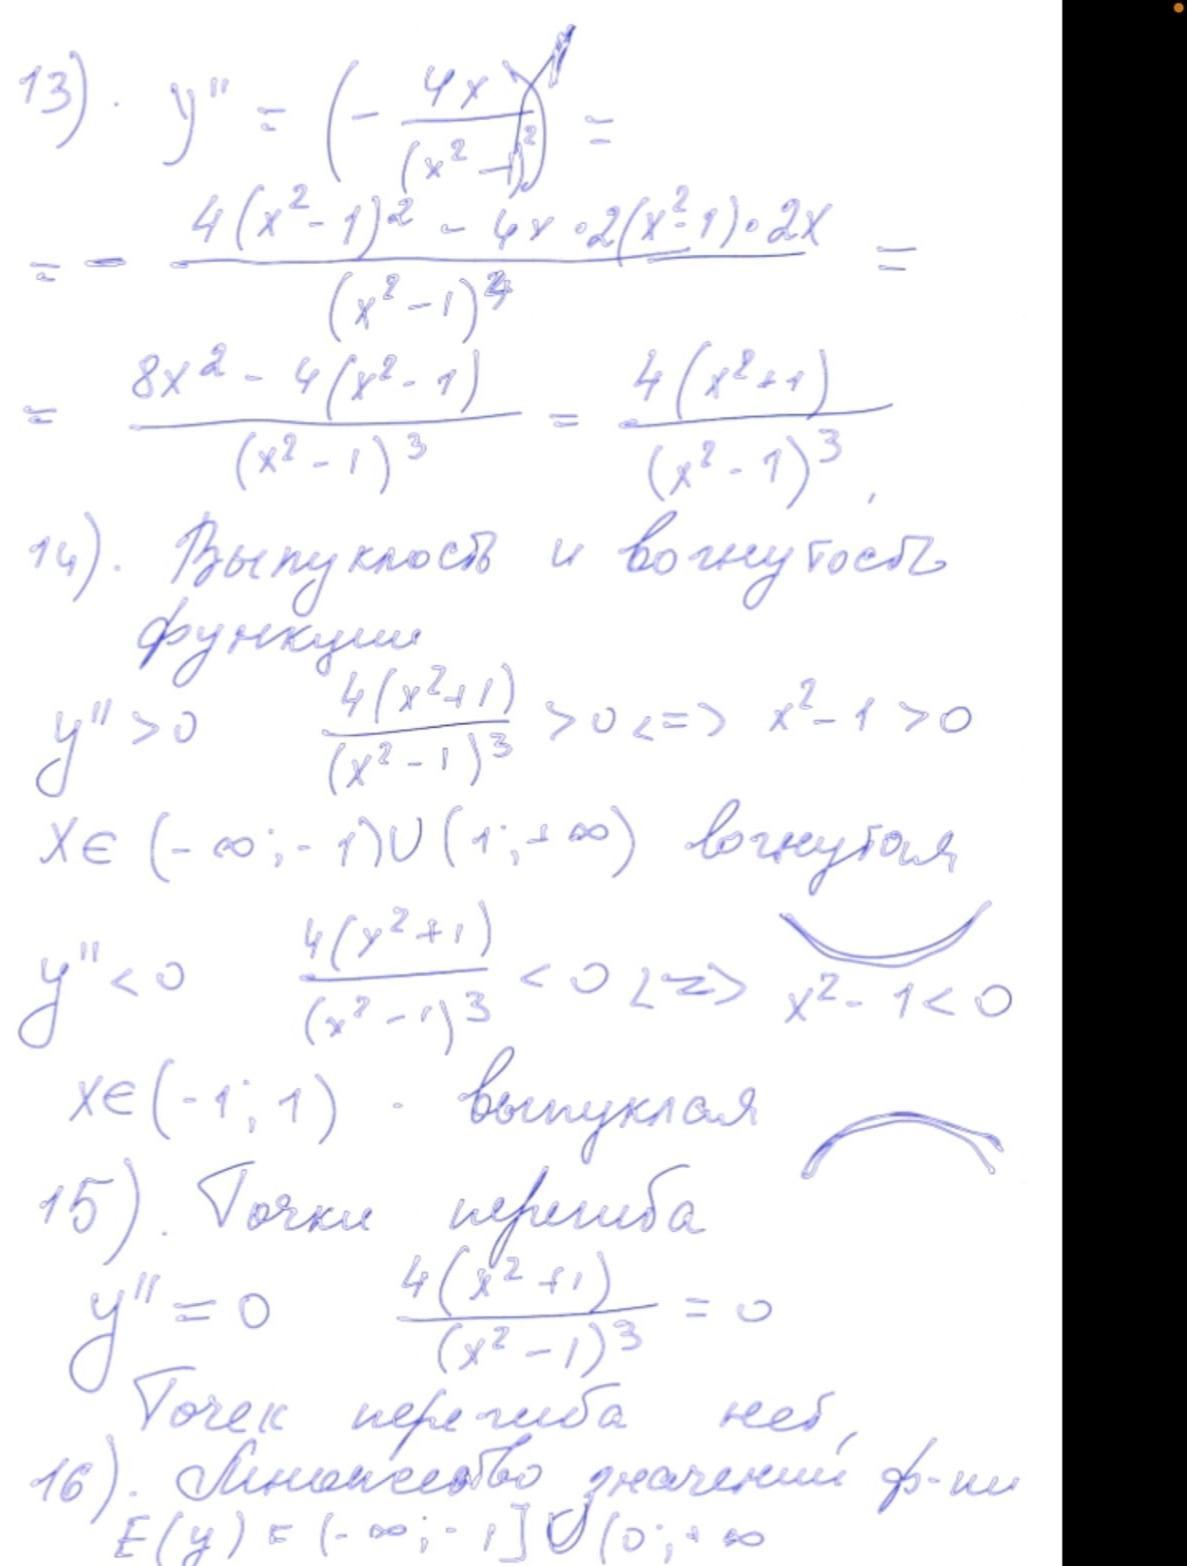 13). y'' = (- 4x / (x² - 1)²)' =
= - 4(x² - 1)² - 4x · 2(x² - 1) · 2x / (x² - 1)⁴ =
= 8x² - 4(x² - 1) / (x² - 1)³ = 4(x² + 1) / (x² - 1)³,
14). Выпуклость и вогнутость
функции
y'' > 0 4(x² + 1) / (x² - 1)³ > 0 <=> x² - 1 > 0
x ∈ (-∞; -1) ∪ (1; +∞) вогнутая
y'' < 0 4(x² + 1) / (x² - 1)³ < 0 <=> x² - 1 < 0
x ∈ (-1; 1) - выпуклая
15). Точки перегиба
y'' = 0 4(x² + 1) / (x² - 1)³ = 0
Точек перегиба нет,
16). Множество значений ф-ии
E(y) = (-∞; -1] ∪ (0; +∞